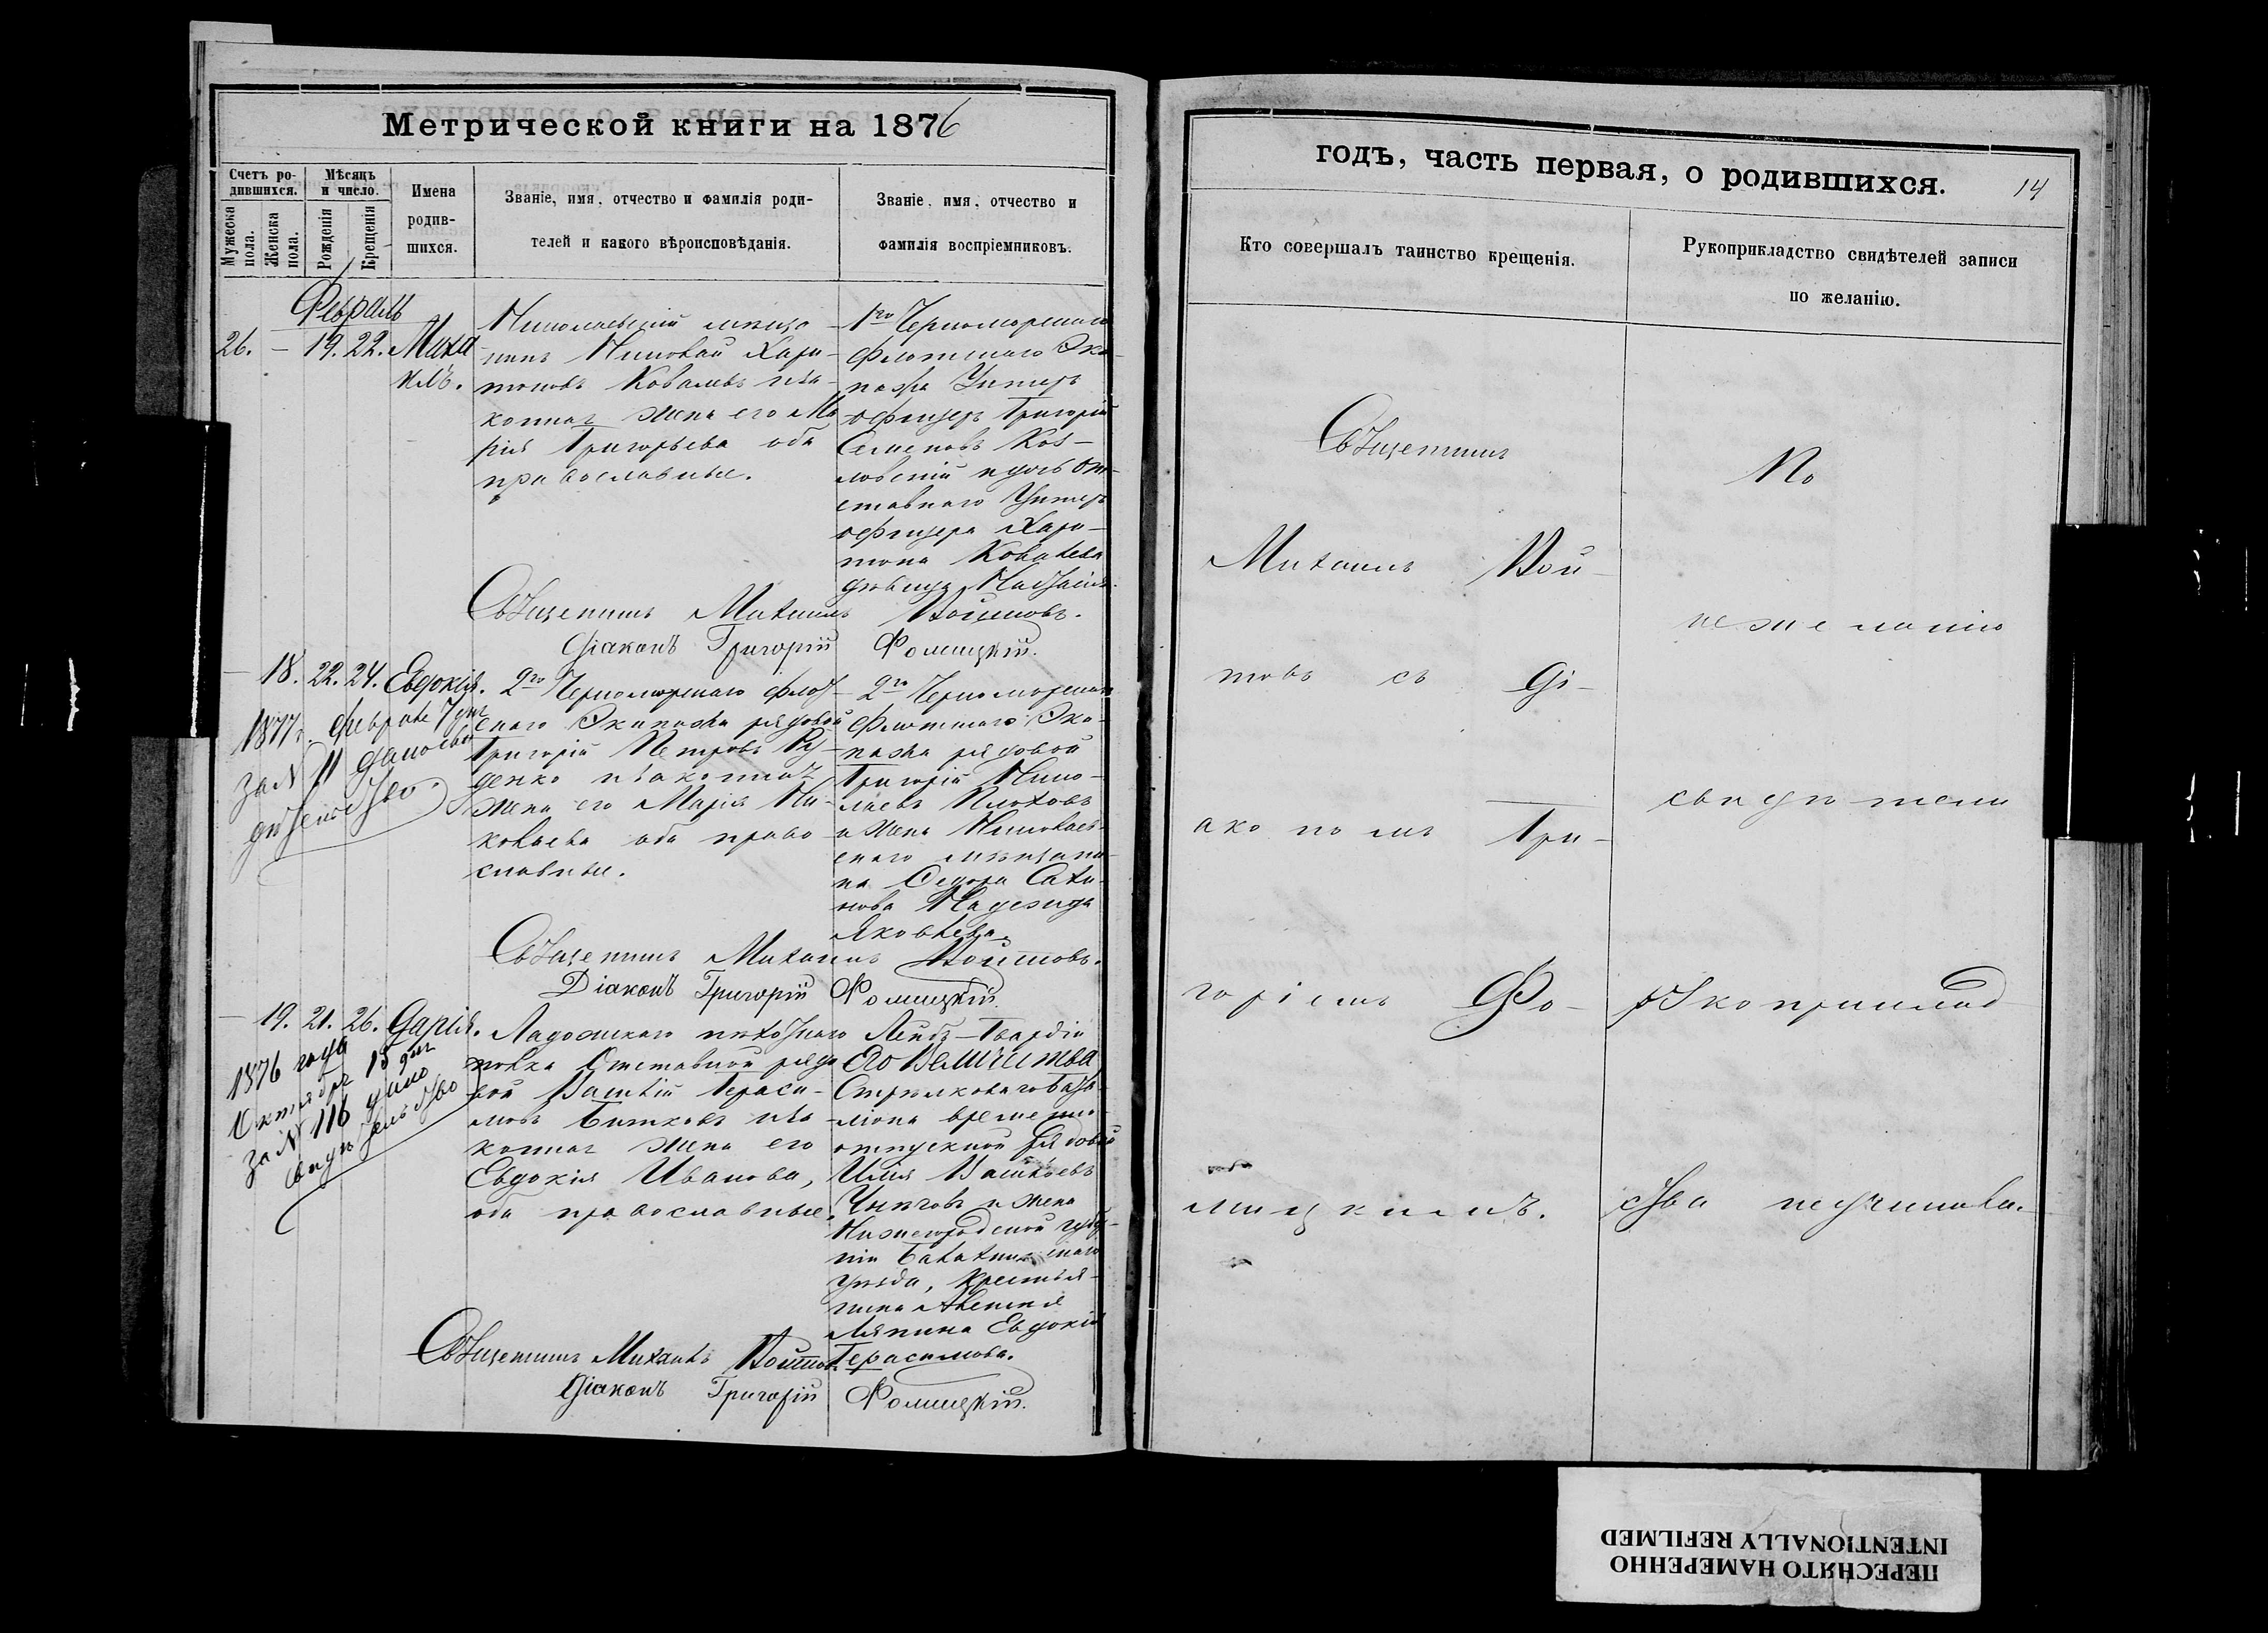 Метрической книги на 1876
Счетъ ро-
дившихся.
Мѣсяцъ
и число.
Мужеска
пола.
Женска
пола.
Рожденія
Крещенія
Имена
родив-
шихся.
Званіе, имя, отчество и фамилія роди-
телей и какого вѣроисповѣданія.
Званіе, имя, отчество и
фамилія воспріемниковъ.
Февраль
26. – 19. 22. Миха
илъ.
Николаевскій мѣща-
нинъ Николай Хари-
тоновъ Ковалевъ и за-
конная жена его Ма
рія Григорьева оба
православные.
1го Черноморскаго
Флотскаго Эки-
пажа Унтеръ
офицеръ Григорій
Семеновъ Коз-
ловскій и дочь от-
ставнаго Унтеръ
офицера Хари-
тона Ковалева
дѣвица
Священникъ Михаилъ Войтовъ.
Діаконъ Григорій Фомицкій.
– 18. 22. 24. Евдокія.
1877 г. февраля 7 дня
за № 11 дано сви
дѣтельство.
2го Черноморскаго флот-
скаго Экипажа рядовой
Григорій Петровъ
денко и законная
жена его Марія
ковлева оба право
славные.
2го Черноморскаго
Флотскаго Эки-
пажа рядовой
Григорій Нико-
лаевъ Плоховъ
и жена Николаев-
скаго мѣщани-
на Федора
нова Надежда
Яковлева.
Священникъ Михаилъ Войтовъ.
Діаконъ Григорій Фомицкій.
– 19. 21. 26. Дарія.
1876 года
Октября 15 дня
за № 116
свидѣтельство
Ладожскаго пѣхотнаго
полка Отставной рядо
вой Василій Гераси-
мовъ Битковъ и за
конная жена его
Евдокія Иванова,
оба православные.
Лейбъ-Гвардіи
Его Величества
Стрѣлковаго Бата-
ліона временно-
отпускной рядовой
Илія Васильевъ
и жена
Нижегородской губер-
ніи Балахнинскаго
уѣзда, крестья-
нина Алексея
Ляпина Евдокія
Герасимова.
Священникъ Михаилъ Войтовъ
Діаконъ Григорій Фомицкій.
годъ, часть первая, о родившихся.
14
Кто совершалъ таинство крещенія.
Рукоприкладство свидѣтелей записи
по желанію.
Священникъ
Михаилъ Вой-
товъ съ Ді-
акономъ Гри-
горіемъ Фо-
мицкимъ.
По
нежеланію
свидѣтели
рукоприклад
ства неучинили.
ПЕРЕСНЯТО НАМЕРЕННО
INTENTIONALLY REFILMED